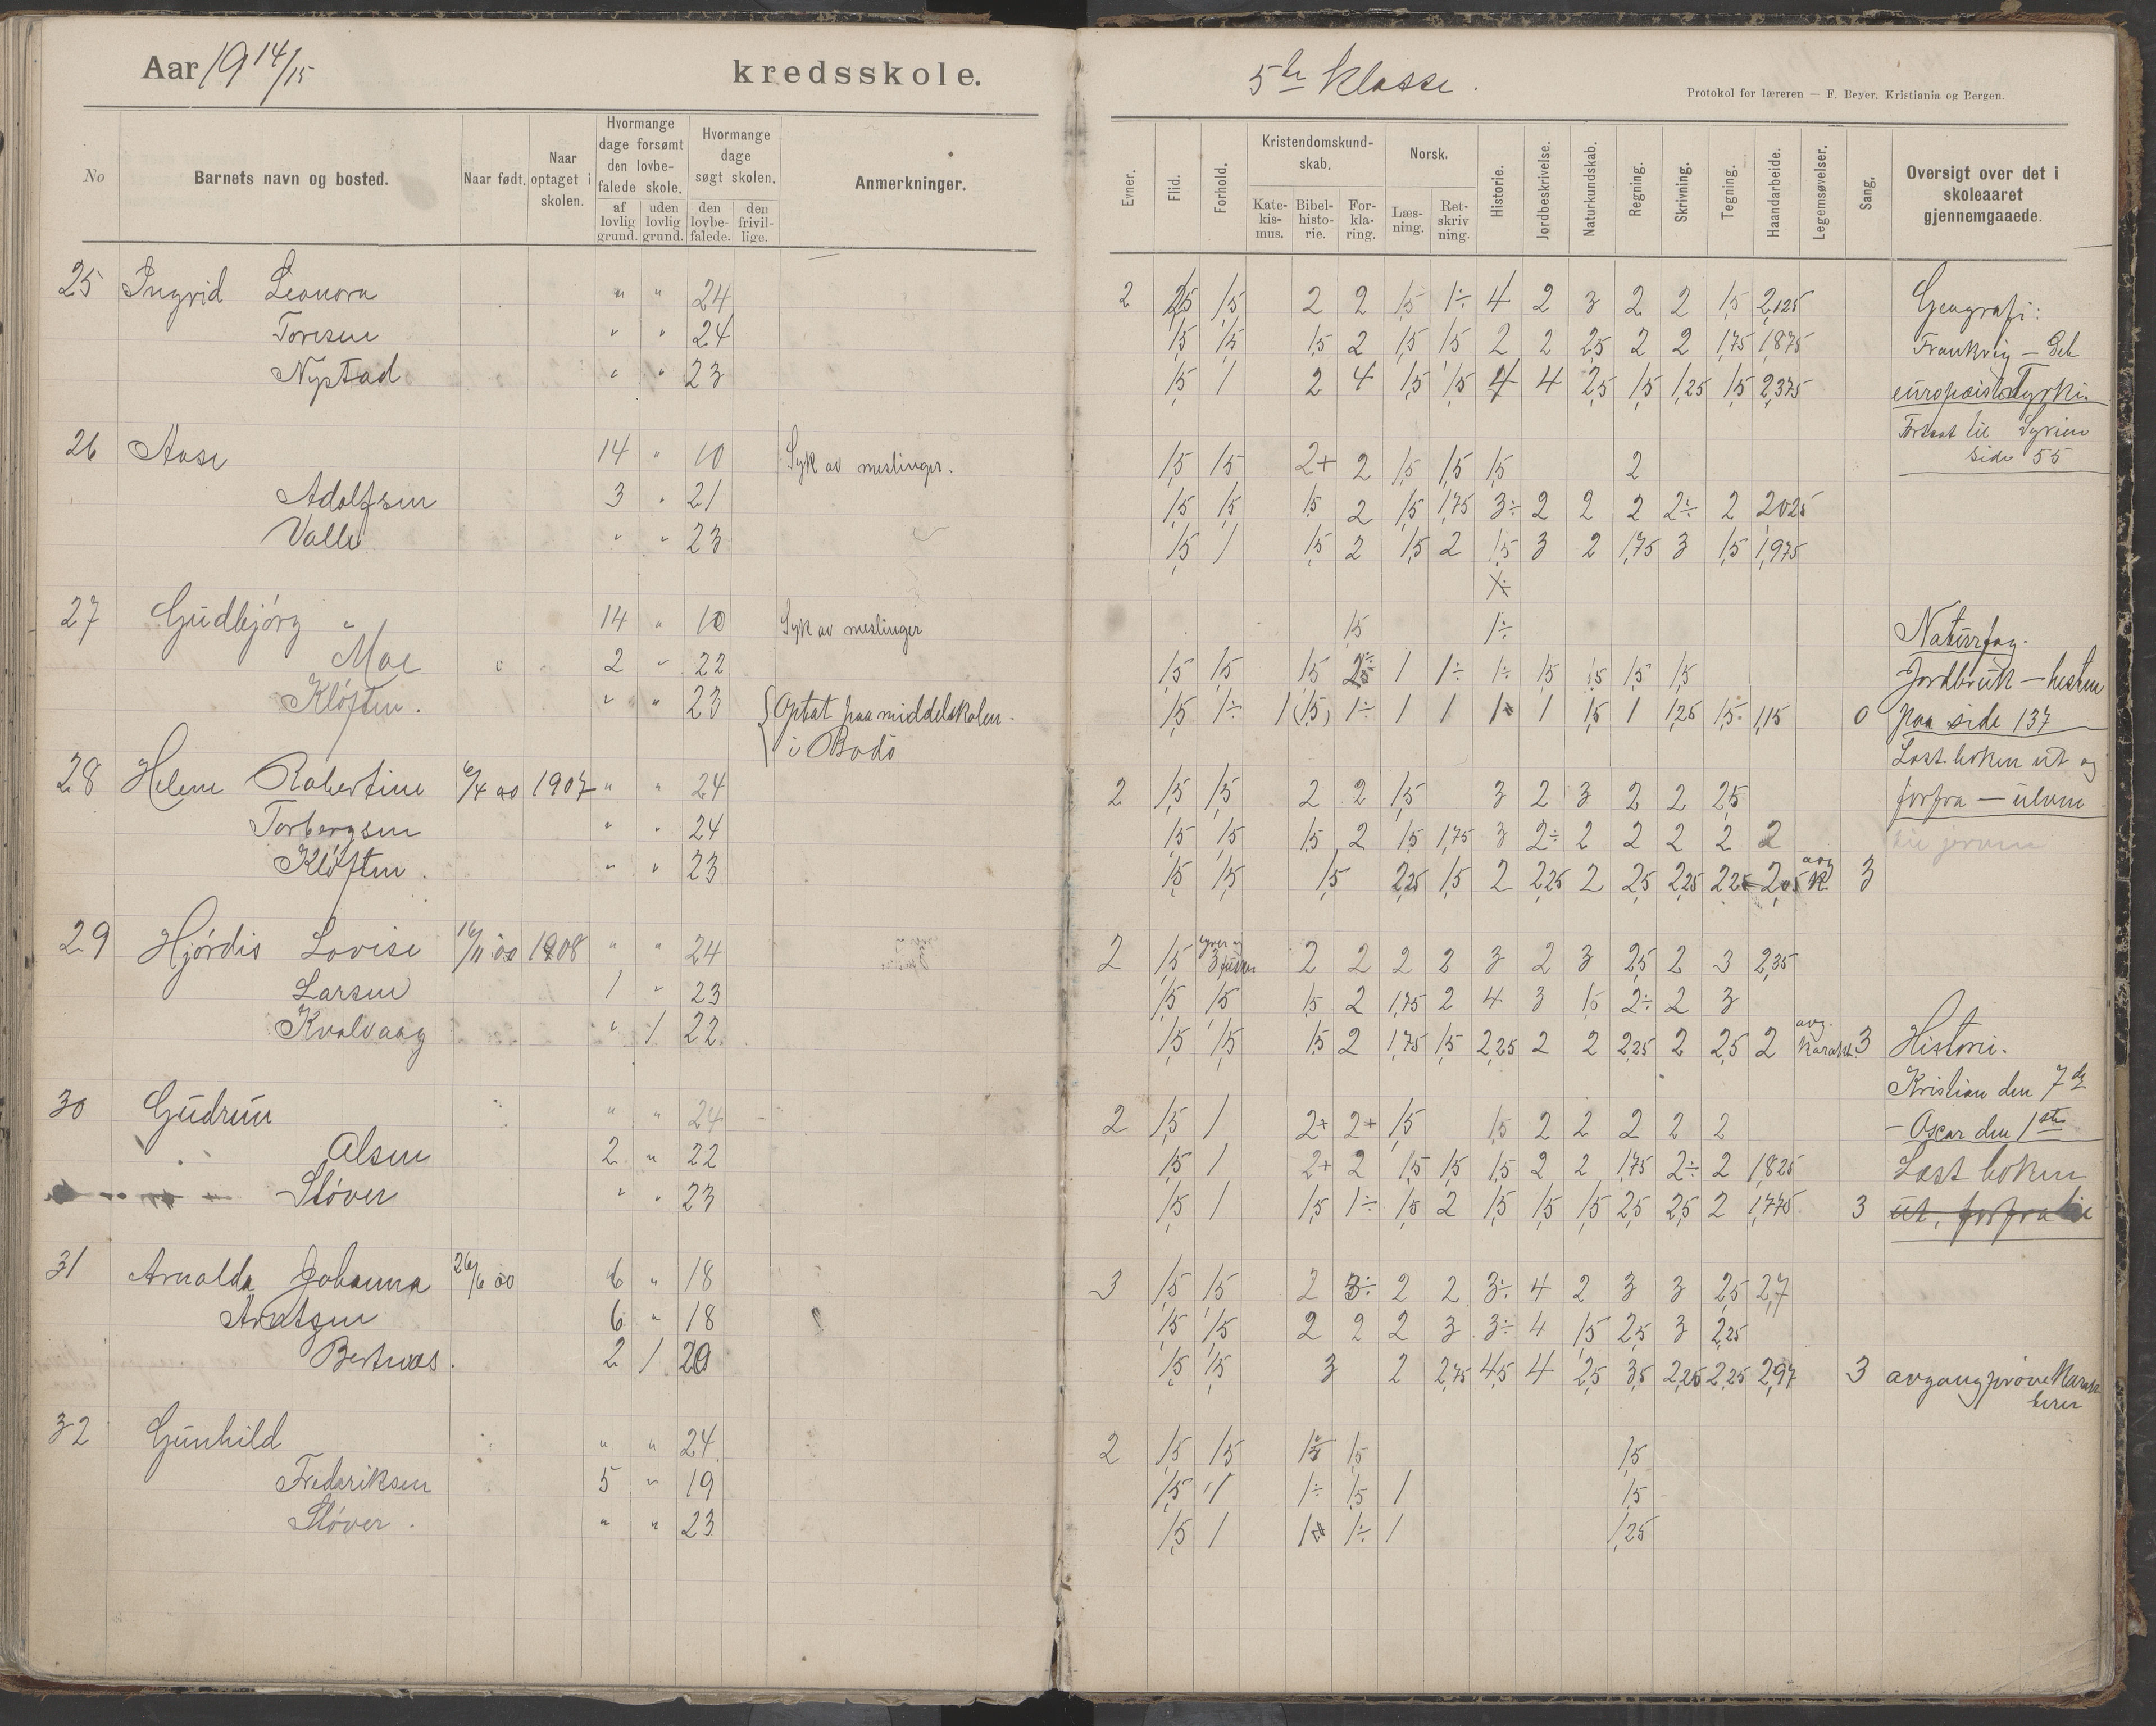 Aar 1914/15 kredsskole.
5te Klasse.
Protokol for læreren — F. Beyer, Kristiania og Bergen.
No Barnets navn og bosted. Naar født. Naar optaget i skolen. Hvormange dage forsømt den lovbefalede skole. af lovlig grund. uden lovlig grund. Hvormange dage søgt skolen. den lovbefalede. den frivillige. Anmerkninger.
Evner. Flid. Forhold. Kristendomskundskab. Katekismus. Bibelhistorie. Forklaring. Norsk. Læsning. Retskrivning. Historie. Jordbeskrivelse. Naturkundskab. Regning. Skrivning. Tegning. Haandarbeide. Legemsøvelser. Sang. Oversigt over det i skoleaaret gjennemgaaede.
25 Ingrid Leonora " " 24 2 1,5 1,5 2 2 1,5 1÷ 4 2 3 2 2 1,5 2,125 Geografi:
Toresen " " 24 1,5 1,5 1,5 2 1,5 1,5 2 2 2,5 2 2 1,75 1,875 Frankrig — Det
Nystad " " 23 1,5 1 2 4 1,5 1,5 4 4 2,5 1,5 1,25 1,5 2,375 europæiske Tyrki.
Fortsat til Syrien
side 55
26 Aase 14 " 10 Syk av meslinger. 1,5 1,5 2+ 2 1,5 1,5 1,5 2
Adolfsen 3 " 21 1,5 1,5 1,5 2 1,5 1,75 3÷ 2 2 2 2÷ 2 2,025
Valle " " 23 1,5 1 1,5 2 1,5 2 1,5 3 2 1,75 3 1,5 1,975
27 Gudbjørg " 14 " 10 Syk av meslinger 1,5 1÷ Naturfag.
Moe 2 " 22 1,5 1,5 1,5 1 1÷ 1÷ 1,5 1,5 1,5 1,5 Jordbruk — hesten
Kløften. " " 23 Optat paa middelskolen 1,5 1÷ 1(1,5) 1÷ 1 1 1 1 1,5 1 1,25 1,5 1,15 0 paa side 137
i Bodø
Læst boken ut og
28 Helene Robertine 6/4 00 1907 " " 24 2 1,5 1,5 2 2 1,5 3 2 3 2 2 2,5 forfra — ulven
Torbergsen " " 24 1,5 1,5 1,5 2 1,5 1,75 3 2÷ 2 2 2 2 2
Kløften. " " 23 1,5 1,5 1,5 2,25 1,5 2 2,25 2 2,5 2,25 2,25 2,05 avg K. 3
29 Hjørdis Lovise 16/11 00 1908 " " 24 2 1,5 3 2 2 2 2 3 2 3 2,5 2 3 2,35
Larsen 1 " 23 1,5 1,5 1,5 2 1,75 2 4 3 1,5 2÷ 2 3
Kvalvaag " 1 22 1,5 1,5 1,5 2 1,75 1,5 2,25 2 2 2,25 2 2,5 2 avg. Karakt. 3 Historie.
Kristian den 7de
30 Gudrun " " 24 2 1,5 1 2+ 2+ 1,5 1,5 2 2 2 2 2 — Oscar den 1ste
Olsen 2 " 22 1,5 1 2+ 2 1,5 1,5 1,5 2 2 1,75 2÷ 2 1,825 Læst boken
Støver " " 23 1,5 1 1,5 1÷ 1,5 2 1,5 1,5 1,5 2,5 2,5 2 1,775 3 ut, forfra
31 Arnolda Johanna 26/6 00 6 " 18 3 1,5 1,5 2 3÷ 2 2 3÷ 4 2 3 3 2,5 2,7
Arntsen 6 " 18 1,5 1,5 2 2 2 3 3÷ 4 1,5 2,5 3 2,25
Bertnes. 2 1 20 1,5 1,5 3 2 2,75 4,5 4 2,5 3,5 2,25 2,25 2,97 3 avgangsprøve Karakterer
32 Gunhild " " 24 2 1,5 1,5 1,5 1,5 1,5
Frederiksen 5 " 19 1,5 1 1÷ 1,5 1 1,5
Støver. " " 23 1,5 1 1 1÷ 1 1,25